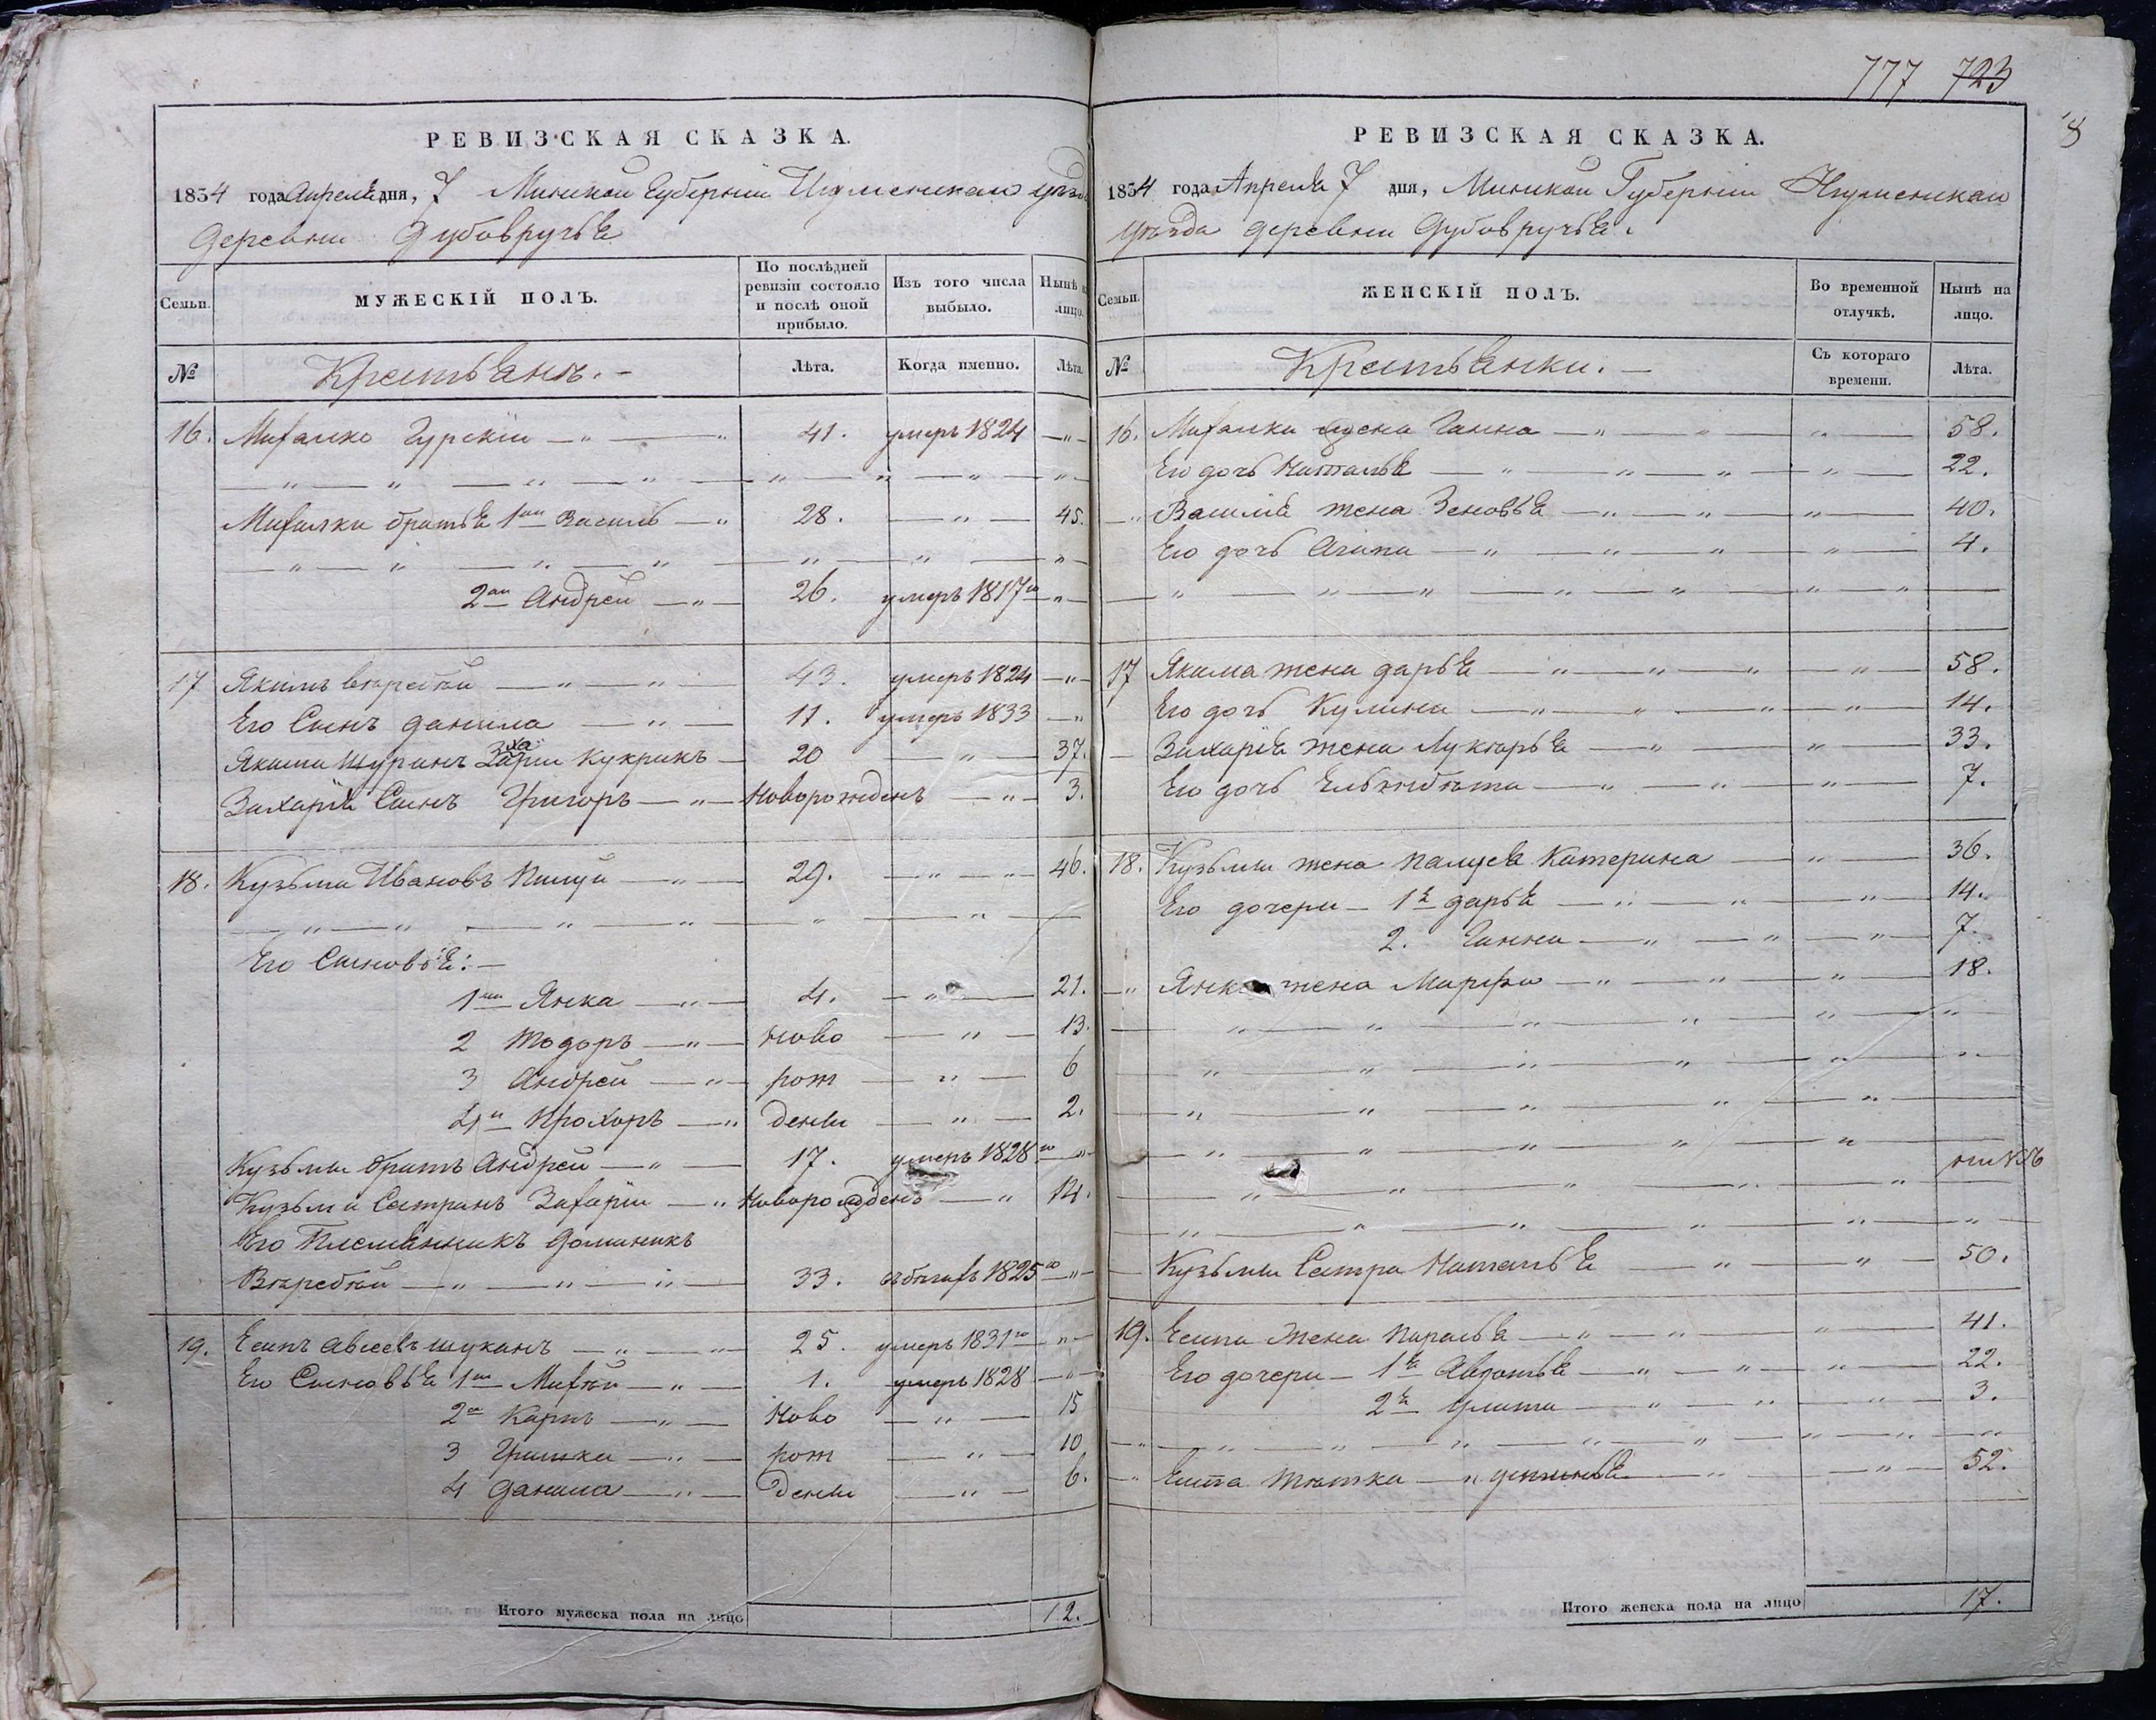 777 723
8
РЕВИЗСКАЯ СКАЗКА.
1834 года Апреля дня, 7 Минской Губерніи Игуменскаго уезда
деревни Дубовручья
Семьи.
МУЖЕСКІЙ ПОЛЪ.
По послѣдней ревизіи состояло и послѣ оной прибыло.
Изъ того числа выбыло.
Нынѣ на лицо.
№
Крестьянъ. –
Лѣта.
Когда именно.
Лѣта.
16. Михалко Гурскій 41. умеръ 1824
Михалки братья 1ый Василь 28. 45.
2ой Андрей 26. умеръ 1817го
17 Якимъ Верабей 43. умеръ 1824
Его Сынъ данила 11. умеръ 1833
Якима Шуринъ Захарiи Кукрикъ 20 37.
Захарiя Сынъ Григоръ Новорожденъ 3.
18. Кузьма Ивановъ Палуй 29. 46.
Его Сыновья: –
1ый Янка 4. 21.
2 Тодоръ Ново 13.
3 Андрей рож 6
4й Прохоръ денны 2.
Кузьмы братъ Андрей 17. умеръ 1828го
Кузьмы Сестранъ Захарiи Новорожденъ 14.
Его Племянникъ Доминикъ
Верабей 33. збегъ 1825го
19. Есипъ Авсеевъ Шуканъ 25. умеръ 1831го
Его Сыновья 1ый Михей 1. умеръ 1828
2ой Карпъ Ново 15
3 Гришка рож 10
4 Данила денны 6.
Итого мужеска пола на лицо 12.
РЕВИЗСКАЯ СКАЗКА.
1834 года Апреля 7 дня, Минской Губерніи Игуменскаго
уезда деревни Дубовручья.
Семьи.
ЖЕНСКІЙ ПОЛЪ.
Во временной отлучкѣ.
Нынѣ на лицо.
№
Крестьянки. –
Съ котораго времени.
Лѣта.
16. Михалки жена Ганна 58.
Его дочь Наталья 22.
Василя жена Зеновья 40.
Его дочь Агапа 4.
17 Якима жена дарья 58.
Его дочь Кулина 14.
Захарiя жена Лукерья 33.
Его дочь Ельжбета 7.
18. Кузьмы жена Палуя Катерина 36.
Его дочери 1я дарья 14.
2. Ганна 7.
Янки жена Марфа 18.
Кузьмы Сестра Наталья 50.
19. Есипа жена Параска 41.
Его дочери 1я Авдотья 22.
2я Улита 3.
Есипа тетка Устинья 52.
Итого женска пола на лицо 17.